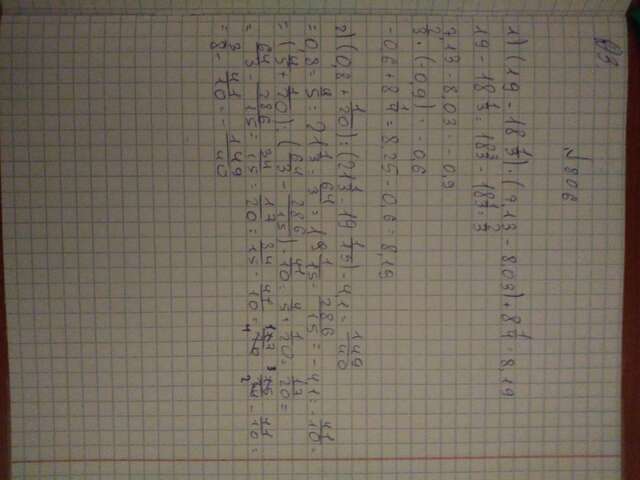 №808
1) (19 - 18 1/3) · (7,13 - 8,03) + 8 1/4 = 8,19
19 - 18 1/3 = 18 3/3 - 18 1/3 = 2/3
7,13 - 8,03 = -0,9
2/3 · (-0,9) = -0,6
-0,6 + 8 1/4 = 8,25 - 0,6 = 8,19
2) (0,8 + 1/20) : (21 1/3 - 19 1/15) - 4,1 = - 149/40
= 0,8 = 4/5 ; 21 1/3 = 64/3 = 19 1/15 = 286/15 = -4,1 = - 41/10 =
= (4/5 + 1/20) : (64/3 - 286/15) - 41/10 = 4/5 + 1/20 = 17/20 =
= 64/3 - 286/15 = 34/15 = 17/20 : 34/15 - 41/10 =
= 3/8 - 41/10 = - 149/40